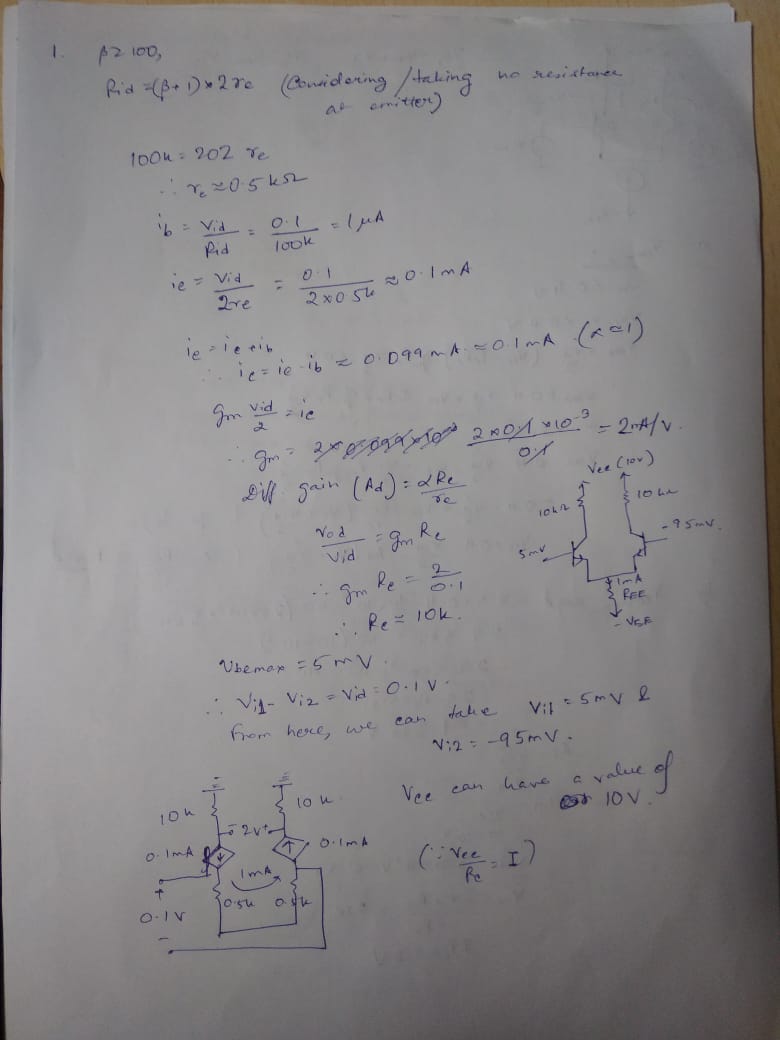 1. β = 100,
Rid = (β+1) * 2re (Considering / taking no resistance
at emitter)
100k = 202 re
∴ re ≈ 0.5 kΩ
ib = Vid / Rid = 0.1 / 100k = 1 μA
ie = Vid / 2re = 0.1 / 2x0.5k ≈ 0.1 mA
ie = ic + ib
∴ ic = ie - ib ≈ 0.099 mA ≈ 0.1 mA (α ≈ 1)
gm Vid / 2 = ic
∴ gm = 2x0.1x10^-3 / 0.1 = 2mA/V
Diff. gain (Ad) = αRc / re
Vod / Vid = gm Rc
∴ gm Rc = 2 / 0.1
∴ Rc = 10k.
Vcc (10V)
10kΩ
10kΩ
5mV
-95mV
1mA
REE
-VEE
Vbemax = 5mV.
∴ Vi1 - Vi2 = Vid = 0.1V.
From here, we can take Vi1 = 5mV &
Vi2 = -95mV.
Vcc can have a value of
10V.
(∵ Vcc / Rc = I)
10k
10k
- 2V +
0.1mA
0.1mA
1mA
+
0.1V
-
0.5k
0.5k